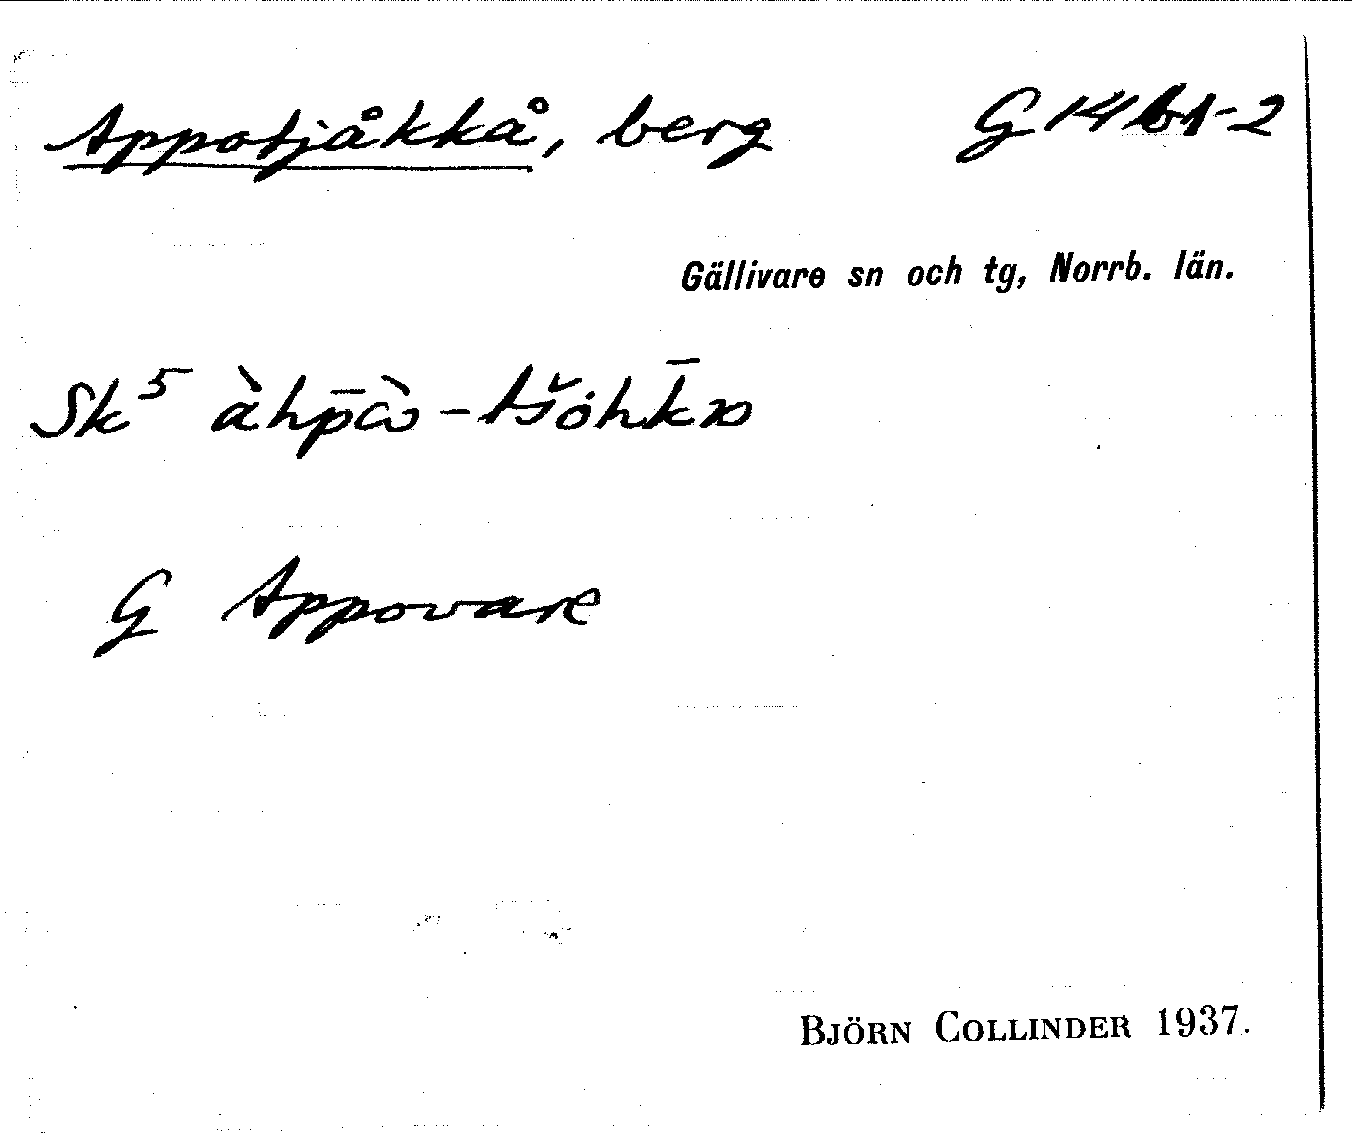 Appotjåkkå, berg G 14 b1-2
Gällivare sn och tg, Norrb. län.
Sk⁵ àhp̄ὼ-tšòhk̄ω
G Appovare
BJÖRN COLLINDER 1937.